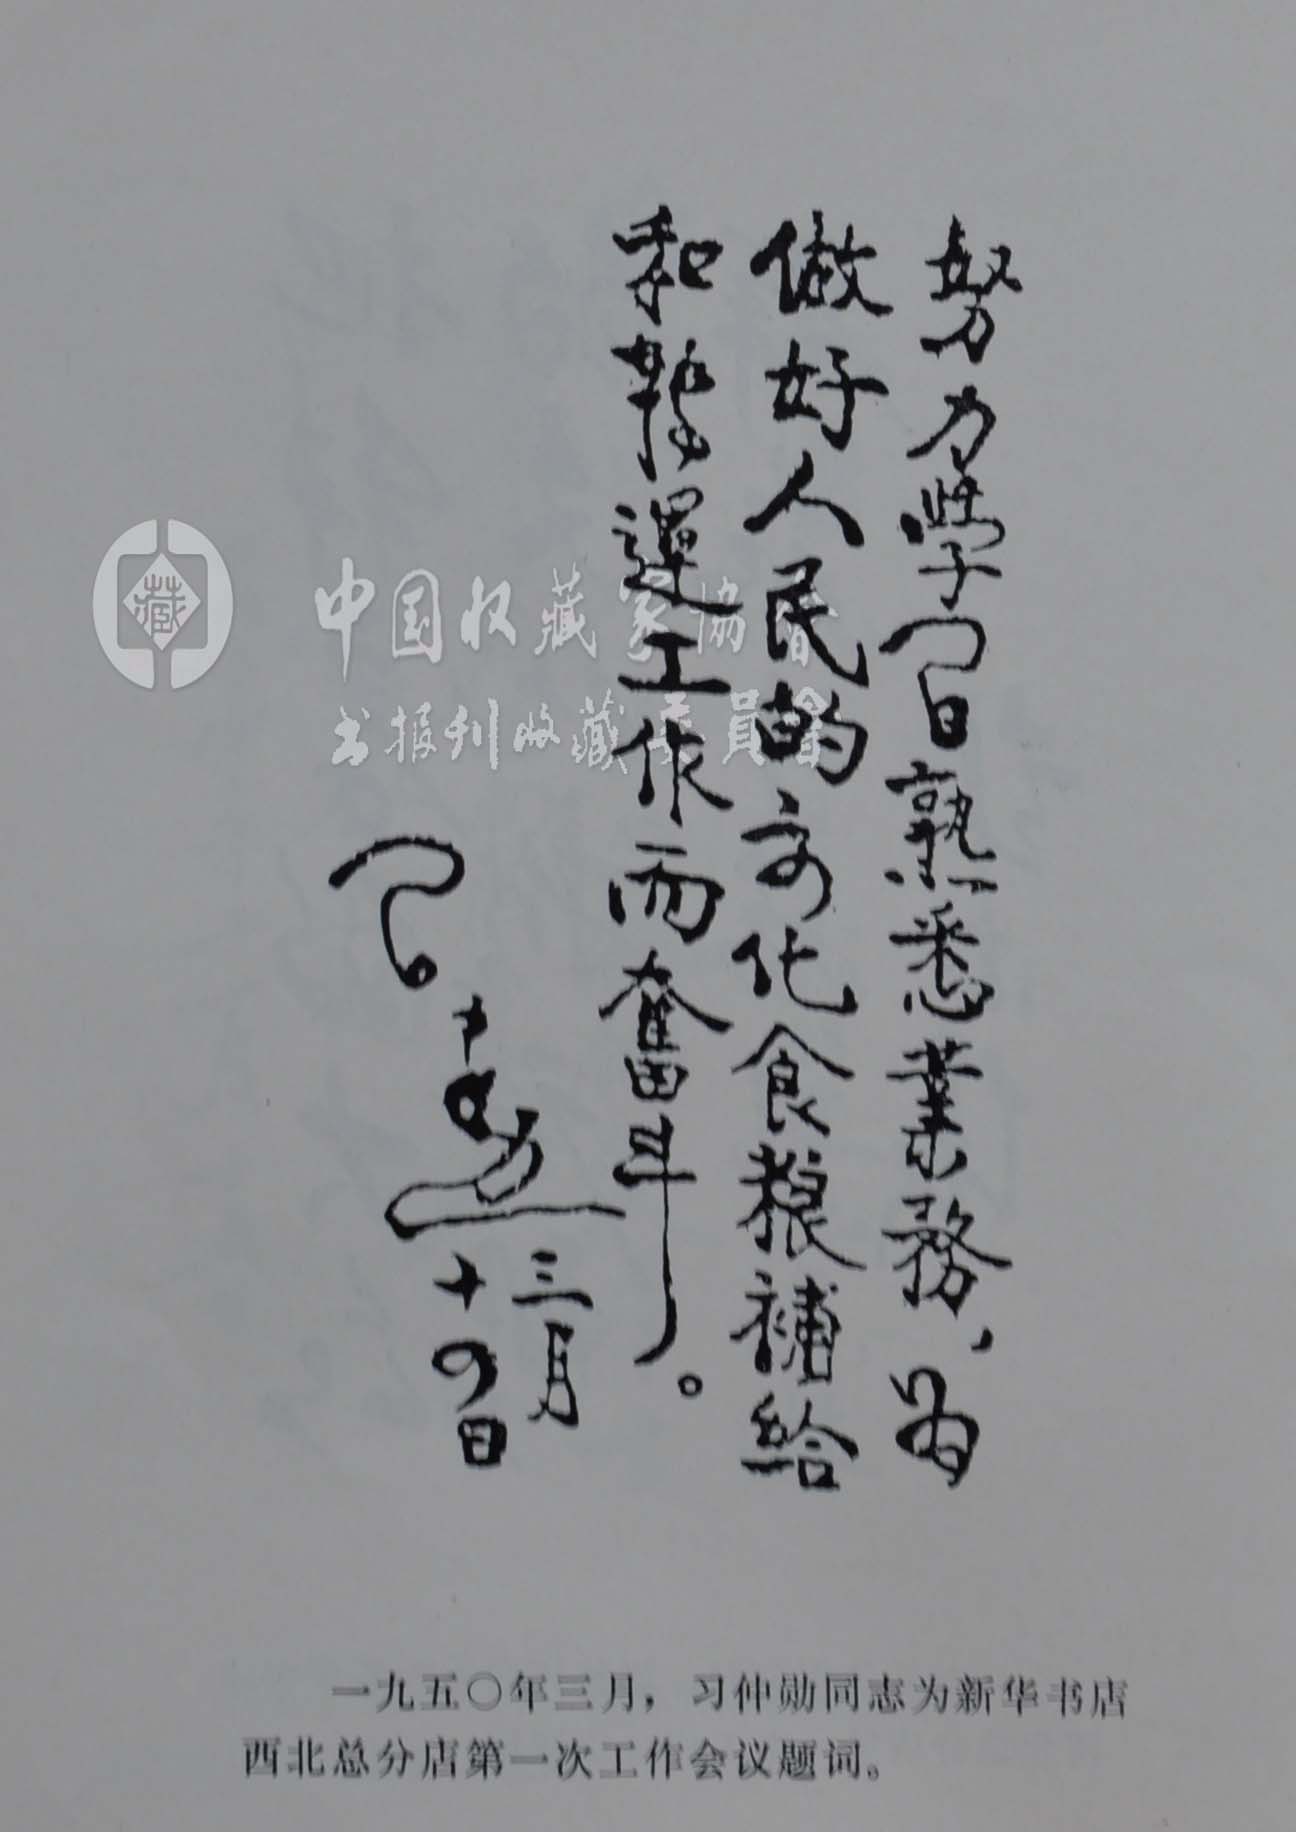 努力學習熟悉業務，为
做好人民的文化食粮補給
和轉運工作而奮斗。
习仲勋
三月
十四日
藏
中国收藏家協會
书报刊收藏委員會
一九五〇年三月，习仲勋同志为新华书店
西北总分店第一次工作会议题词。